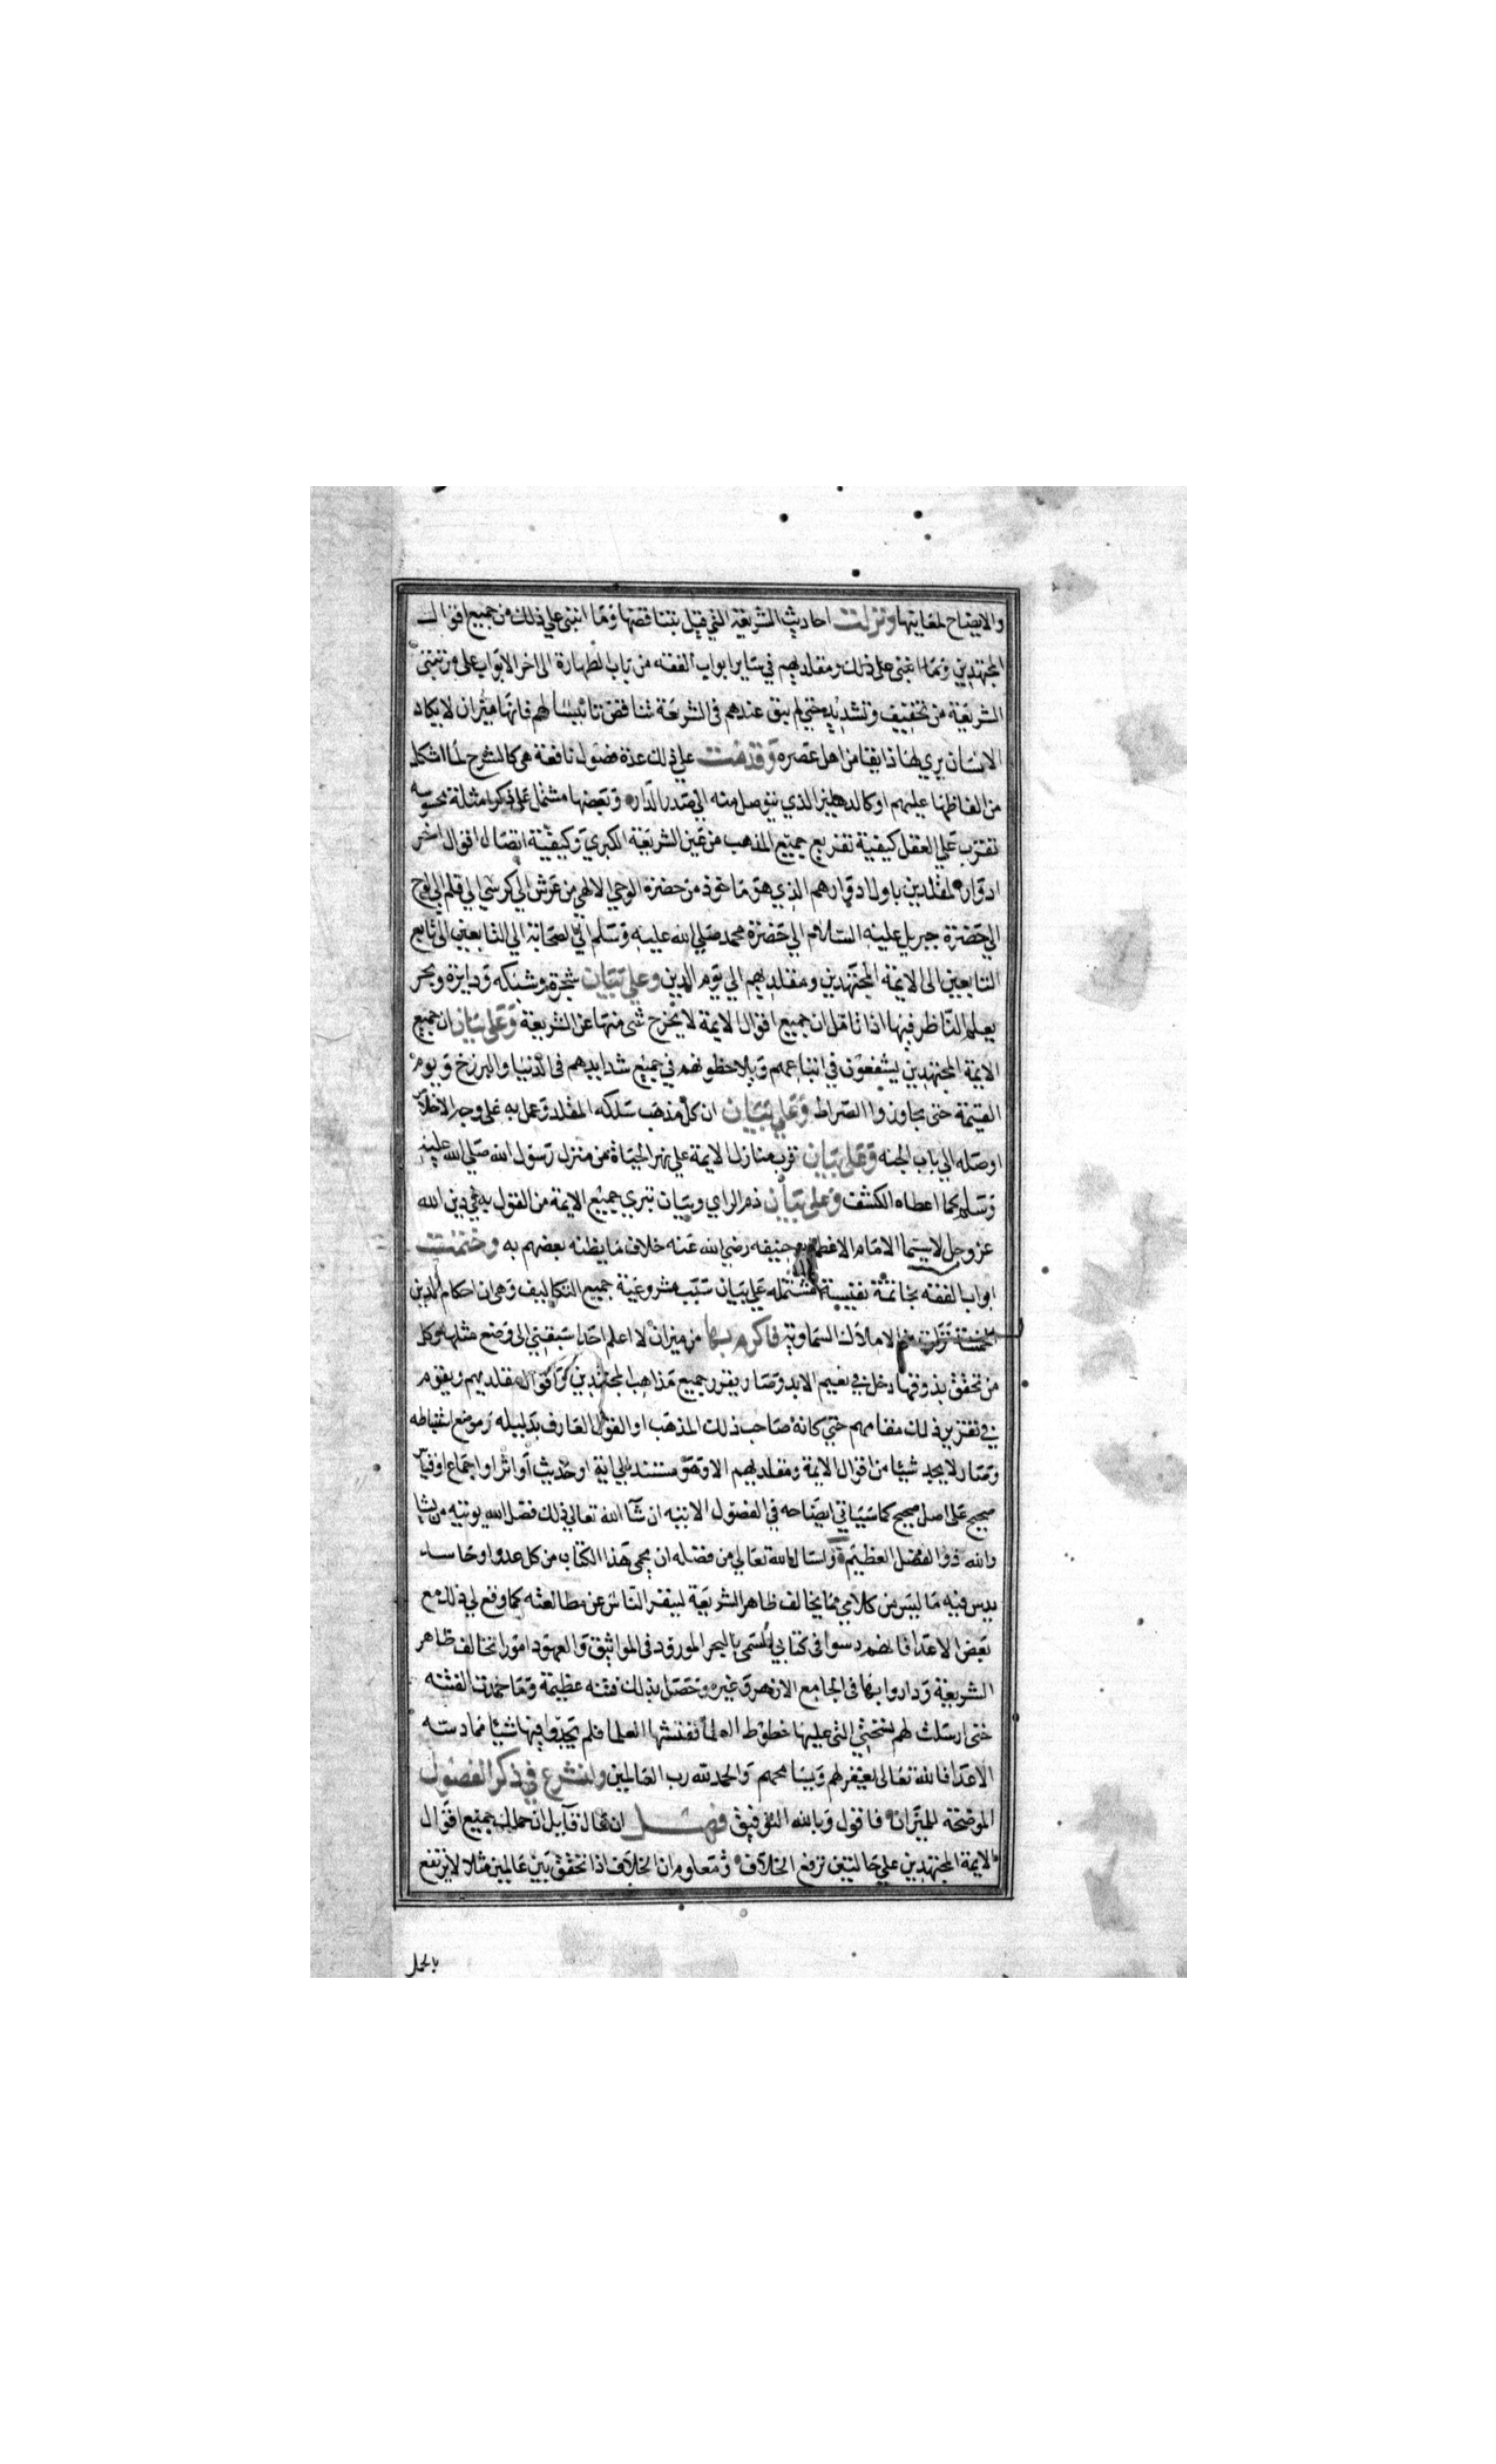 والايضاح لمعانيها ونزلت احاديث الشريعة التي قيل بتناقضها وما انبنى علي ذلك من جميع اقوال
المجتهدين ومقلديهم في ساير ابواب الفقه من باب الطهارة الى اخر الابواب على مرتبتى
الشريعة من تخفيف وتشديد حتي لم يبق عندهم في الشريعة تناقض تانيسا لهم فانها ميزان لا يكاد
الانسان يرى لها ذايقا من اهل عصره وقدمت علي ذلك عدة فصول نافعة هي كالشرح لما اشكل
من الفاظها عليهم او كالدهليز الذي يتوصل منه الى صدر الدار وبعضها مشتمل على ذكر امثلة محسوسه
تقرب علي العقل كيفية تفريع جميع المذهب من عين الشريعة الكبري وكيفية اتصال اقوال اخر
ادوار المقلدين باول ادوارهم الذي هو ماخوذ من حضرة الوحي الالهي من عرش الي كرسي الي قلم الي لوح
الي حضرة جبريل عليه السلام الي حضرة محمد صلي الله عليه وسلم الي الصحابة الي التابعين الى تابع
التابعين الى الايمة المجتهدين ومقلديهم الي يوم الدين وعلي بيان شجرة وشبكه ودايرة وبحر
يعلم الناظر فيها اذا تامل ان جميع اقوال الايمة لا يخرج شى منها عن الشريعة وعلى بيان ان جميع
الايمة المجتهدين يشفعون في اتباعهم ويلاحظونهم في جميع شدايدهم في الدنيا والبرزخ ويوم
القيمة حتى يجاوزوا الصراط وعلي بيان ان كل مذهب سلكه المقلد وعمل به على وجه الاخلاص
اوصله الي باب الجنه وعلى بيان قرب منازل الايمة علي نهر الحياة من منزل رسول الله صلي الله عليه
وسلم كما اعطاه الكشف وعلى بيان ذم الراي وبيان تبري جميع الايمة من القول به في دين الله
عز وجل لاسيما الامام الاعظم حنيفه رضي الله عنه خلاف ما يظنه بعضهم به وختمت
ابواب الفقه بخاتمة نفيسة مشتمله علي بيان سبب مشروعية جميع التكاليف وهي ان احكام الدين
الخمسة نزلت من الاملاك السماويه فاكرم بها من ميزان لا اعلم احدا سبقني الى وضع مثلها وكل
من تحقق بذوقها دخل في نعيم الابد وصار يقرر جميع مذاهب المجتهدين واقوال مقلديهم ويقوم
في تقرير ذلك مقامهم حتي كانه صاحب ذلك المذهب او القول العارف بدليله وموضع استنباطه
وصار لا يجد شيئا من اقوال الايمة ومقلديهم الا وهو مستند الي اية او حديث او اثر او اجماع او قياس
صحيح على اصل صحيح كما سيياتي ايضاحه في الفصول الاتيه ان شآ الله تعالي ذلك فضل الله يوتيه من يشا
والله ذو الفضل العظيم واسال الله تعالي من فضله ان يحمي هذا الكتاب من كل عدو او حاسد
يدس فيه ما ليس من كلامي مما يخالف ظاهر الشريعة لينفر الناس عن مطالعته كما وقع لي ذلك مع
بعض الاعدا فانهم دسوا في كتابي المسمى بالبحر المورود في المواثيق والعهود امورا تخالف ظاهر
الشريعة وداروا بها في الجامع الازهر وغيره وحصل بذلك فتنه عظيمة وما خمدت الفتنه
حتى ارسلت لهم نسختي التي عليها خطوط العلمآ ففتشها العلما فلم يجدوا فيها شيئا مما دسته
الاعدا فالله تعالى يغفر لهم ويسامحهم والحمد لله رب العالمين ولنشرع في ذكر الفصول
الموضحة للميزان فاقول وبالله التوفيق فصل ان قال قآيل ان حملك جميع اقوال
الايمة المجتهدين علي حالتين ترفع الخلاف ومعلوم ان الخلاف اذا تحقق بين عالمين مثلا لا يرتفع
بالحمل